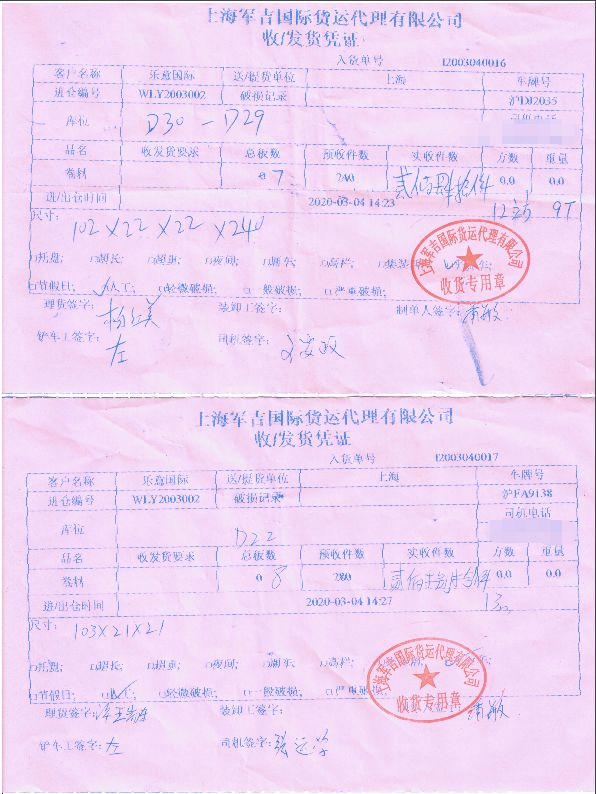 上海军吉国际货运代理有限公司
收/发货凭证
入货单号 I2003040016
客户名称 乐意国际 送/提货单位 上海 车牌号
进仓编号 WLY2003002 破损记录 沪DJ2035
库位 D30-D29 司机电话
品名 收发货要求 总板数 预收件数 实收件数 方数 重量
卷材 0 7 240 贰佰肆拾件 0.0 0.0
进/出仓时间 2020-03-04 14:23 9T
尺寸: 102X22X22X240
□托盘; □超长; □超重; □夜间; □翻车; □高栏;
□节假日; 人工; □轻微破损; □一般破损; □严重破损;
上海军吉国际货运代理有限公司
收货专用章
理货签字: 装卸工签字: 制单人签字:
铲车工签字: 左 司机签字:
上海军吉国际货运代理有限公司
收/发货凭证
入货单号 I2003040017
客户名称 乐意国际 送/提货单位 上海 车牌号
进仓编号 WLY2003002 破损记录 沪FA9138
库位 D22 司机电话
品名 收发货要求 总板数 预收件数 实收件数 方数 重量
卷材 0 8 280 0.0 0.0
进/出仓时间 2020-03-04 14:27
尺寸: 103X21X21
□托盘; □超长; □超重; □夜间; □翻车; □高栏;
□节假日; 人工; □轻微破损; □一般破损; □严重破损
上海军吉国际货运代理有限公司
收货专用章
理货签字: 装卸工签字:
铲车工签字: 左 司机签字: